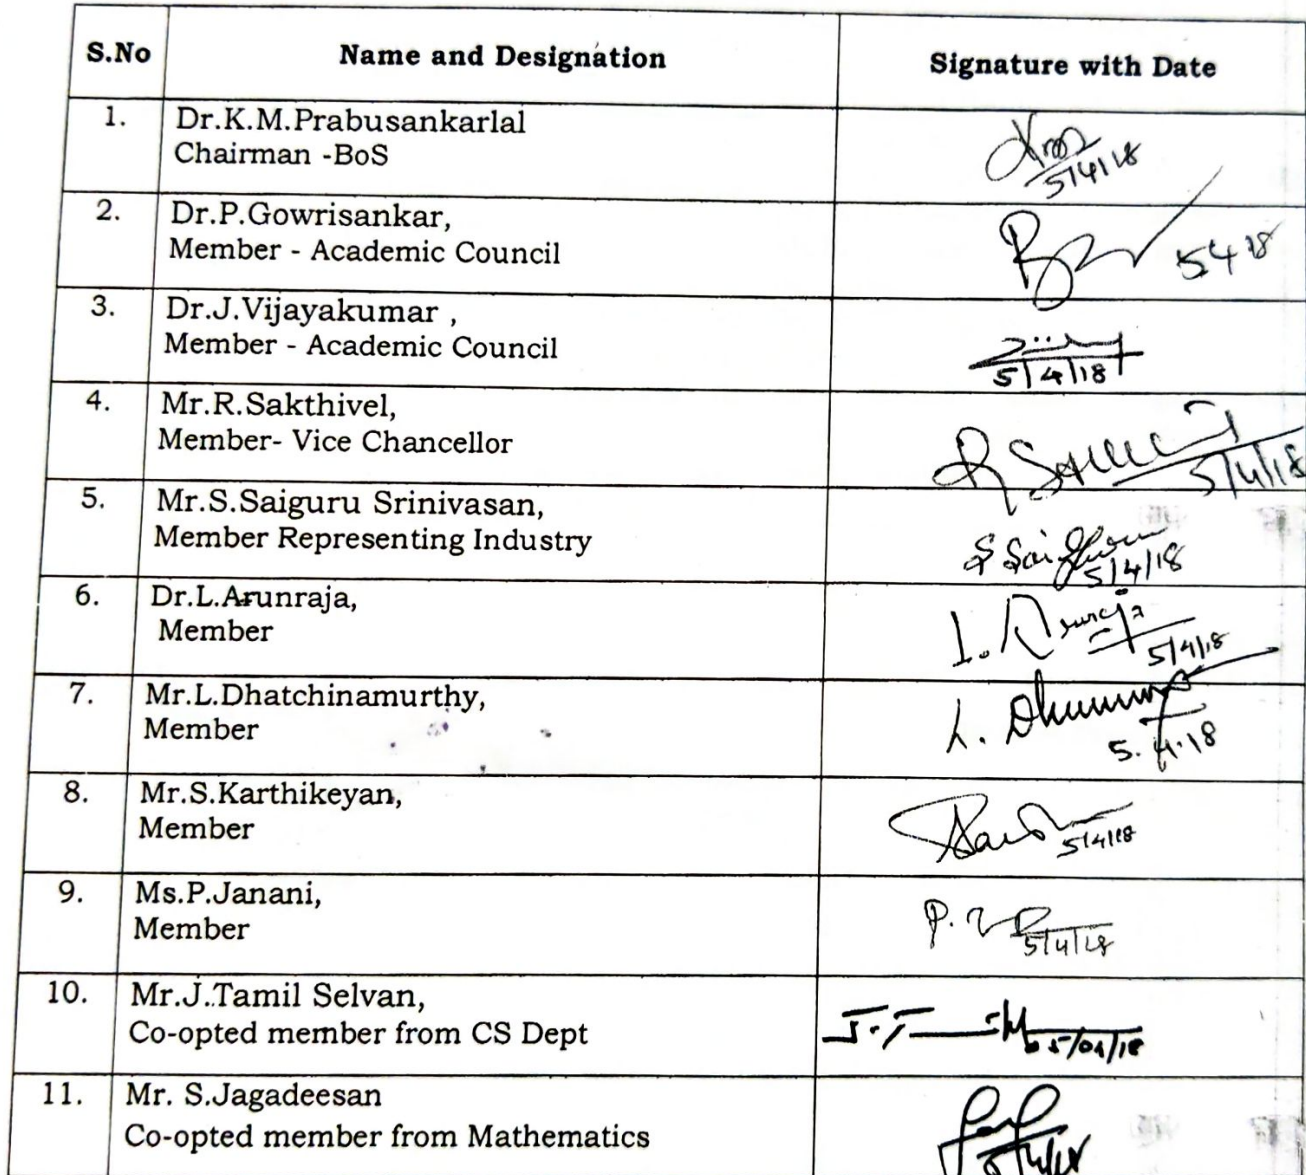 S.No Name and Designation Signature with Date
1. Dr.K.M.Prabusankarlal
Chairman -BoS
5/4/18
2. Dr.P.Gowrisankar,
Member - Academic Council
5 4 18
3. Dr.J.Vijayakumar ,
Member - Academic Council
5/4/18
4. Mr.R.Sakthivel,
Member- Vice Chancellor
5/4/18
5. Mr.S.Saiguru Srinivasan,
Member Representing Industry
5/4/18
6. Dr.L.Arunraja,
Member
5/4/18
7. Mr.L.Dhatchinamurthy,
Member
5.4.18
8. Mr.S.Karthikeyan,
Member
5/4/18
9. Ms.P.Janani,
Member
5/4/18
10. Mr.J.Tamil Selvan,
Co-opted member from CS Dept
05/04/18
11. Mr. S.Jagadeesan
Co-opted member from Mathematics